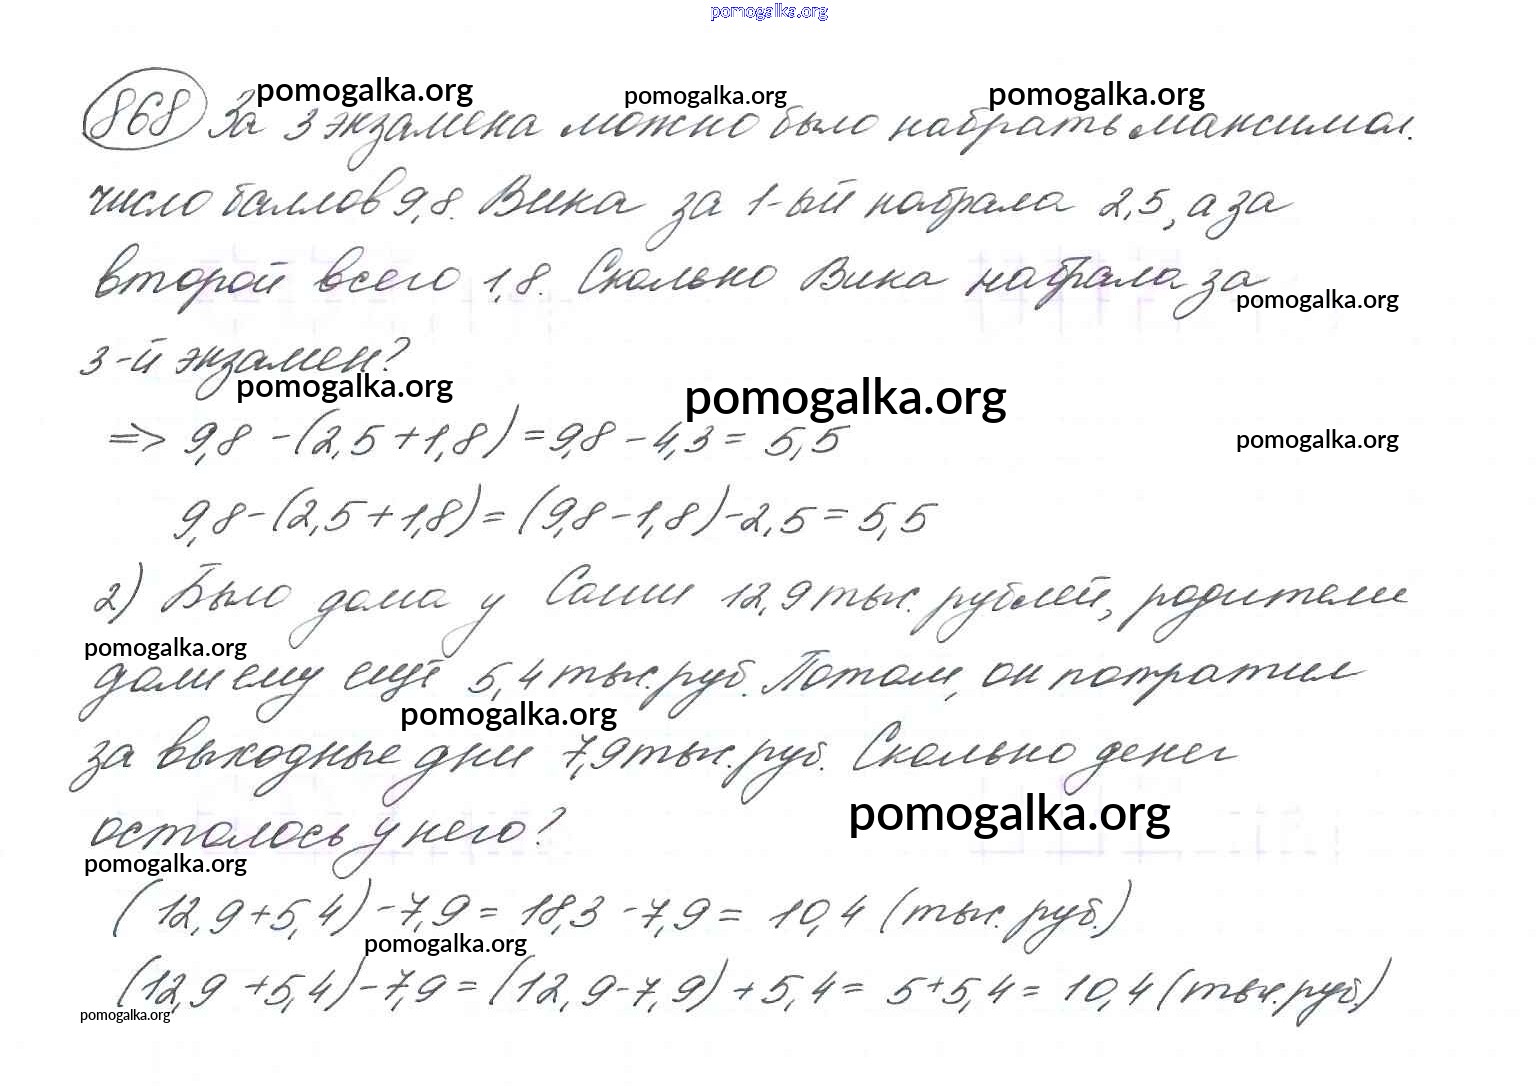 pomogalka.org
868 За 3 экзамена можно было набрать максимал.
pomogalka.org pomogalka.org pomogalka.org
число баллов 9,8. Вика за 1-ый набрала 2,5, а за
второй всего 1,8. Сколько Вика набрала за
pomogalka.org
3-й экзамен?
pomogalka.org pomogalka.org
=> 9,8 - (2,5 + 1,8) = 9,8 - 4,3 = 5,5
pomogalka.org
9,8 - (2,5 + 1,8) = (9,8 - 1,8) - 2,5 = 5,5
2) Было дома у Саши 12,9 тыс. рублей, родители
pomogalka.org
дали ему ещё 5,4 тыс. руб. Потом, он потратил
pomogalka.org
за выходные дни 7,9 тыс. руб. Сколько денег
pomogalka.org
осталось у него?
pomogalka.org
(12,9 + 5,4) - 7,9 = 18,3 - 7,9 = 10,4 (тыс. руб.)
pomogalka.org
(12,9 + 5,4) - 7,9 = (12,9 - 7,9) + 5,4 = 5 + 5,4 = 10,4 (тыс. руб.)
pomogalka.org